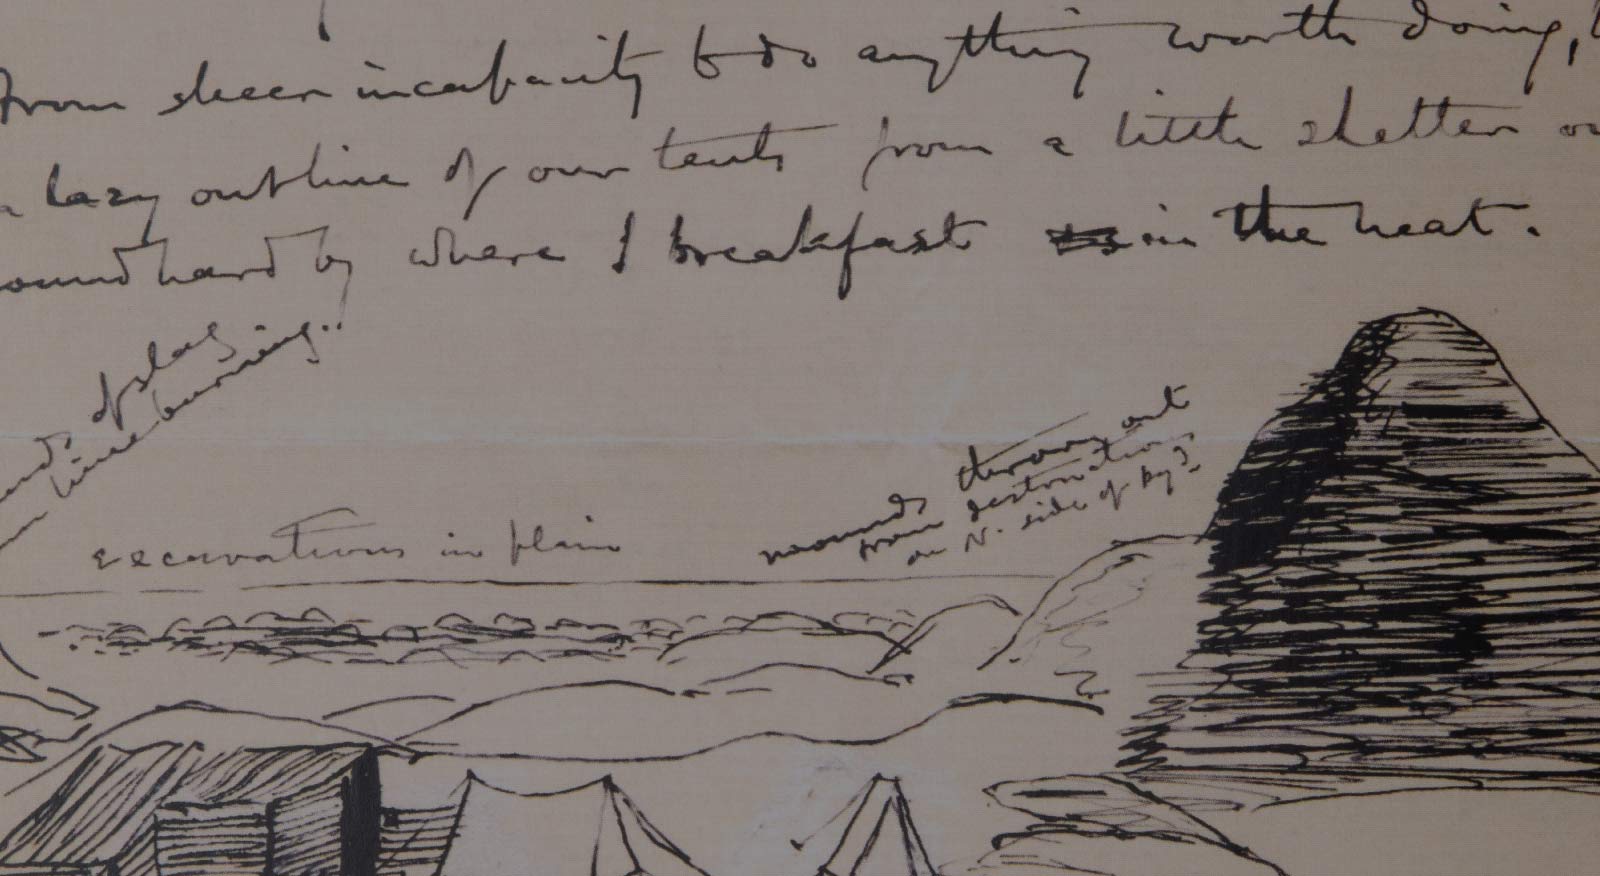 From sheer incapacity to do anything worth doing,
a lazy outline of our tents from a little shelter
hard by where I breakfast in the heat.
of slag
lime burning"
excavations in plain
mounds thrown out
from
on N. side of